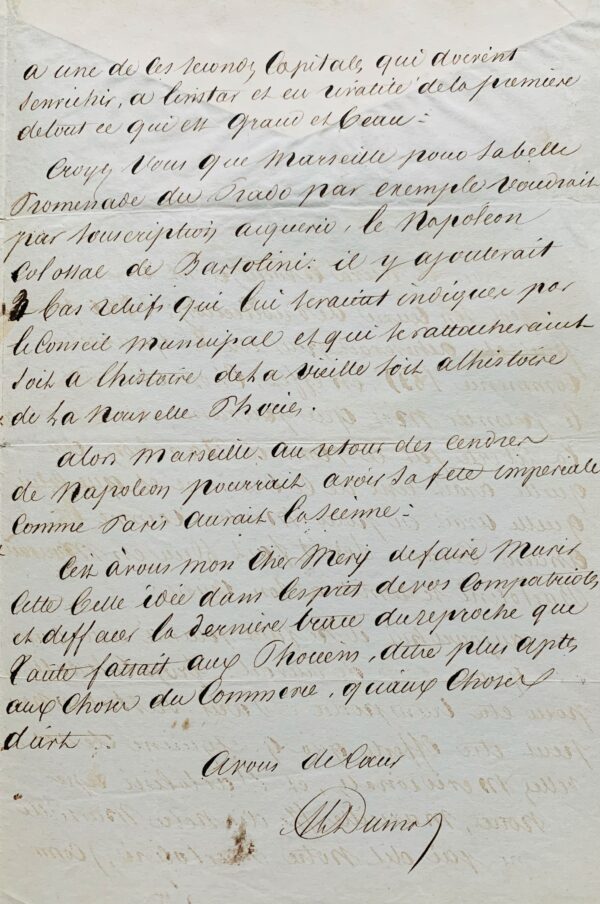 a une de ces secondes Capitales qui doivent
senrichir, a linstar et en rivalité de la première
de tout ce qui est Grand et beau -
Croyez Vous que Marseille pour sa belle
Promenade du Prado par exemple voudrait
par souscription acquerir le Napoléon
Colossal de Bartolini. il y ajouterait
4 bas reliefs qui lui seraient indiqués par
le Conseil Municipal et qui se rattacheraient
soit a lhistoire de la vieille soit alhistoire
de la Nouvelle Phocée.
alors Marseille au retour des Cendres
de Napoleon pourrait avoir sa fete imperiale
Comme Paris aurait la sienne -
Cest a vous mon Cher Mery de faire Murir
Cette belle idée dans lesprit de vos Compatriotes
et deffacer la dernière trace du reproche que
faisait aux Phoceens, detre plus aptes
aux Choses du Commerce, quaux Choses
dart
A vous de Coeur
Al Dumas